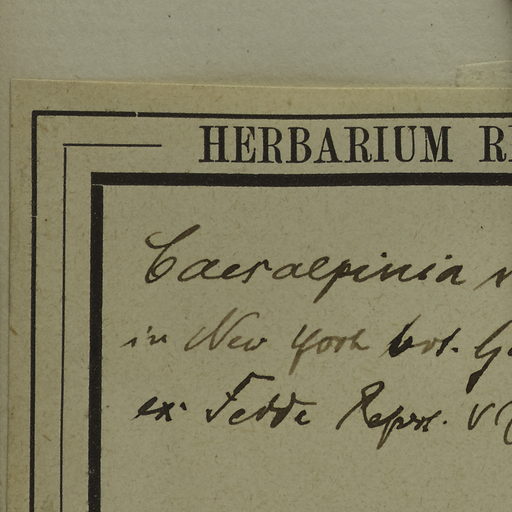 HERBARIUM
Caesalpinia
in New York bot.
ex. Fedde Repert. V